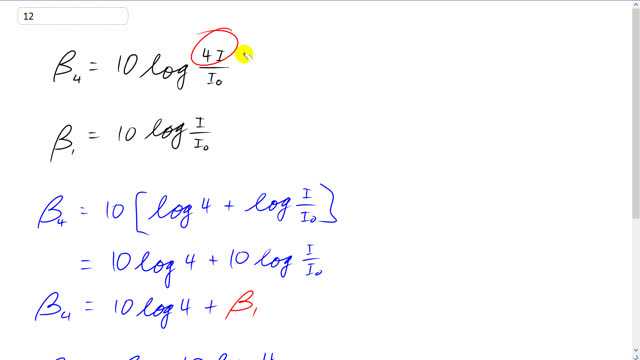 12
β₄ = 10 log 4I/I₀
β₁ = 10 log I/I₀
β₄ = 10 [ log 4 + log I/I₀ ]
= 10 log 4 + 10 log I/I₀
β₄ = 10 log 4 + β₁